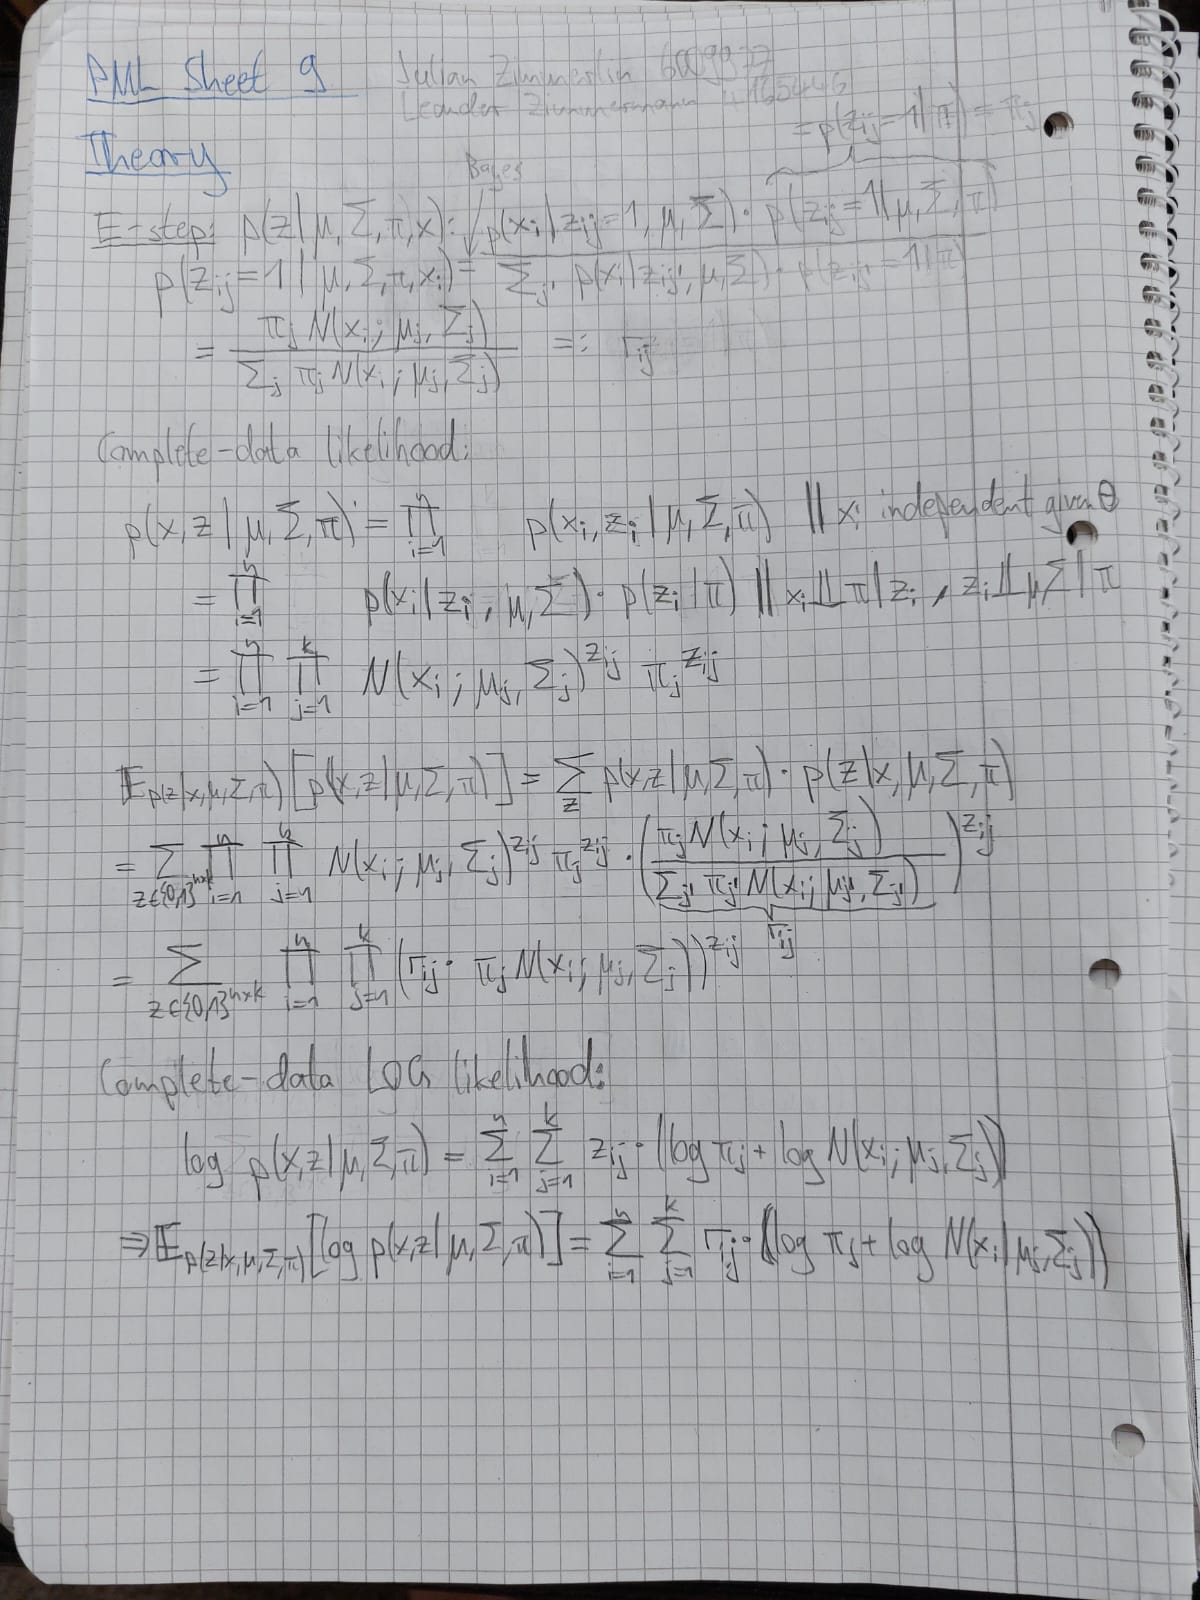 PML Sheet 9 Julian Zimmerlin 6009977
Leander Zimmermann 4165446
= p(z_ij = 1 | π) = π_j
Theory
Bayes
E-step: p(z | μ, Σ, π, x): p(x_i | z_ij = 1, μ, Σ) · p(z_ij = 1 | μ, Σ, π)
p(z_ij = 1 | μ, Σ, π, x_i) = Σ_j' p(x_i | z_ij', μ, Σ) · p(z_ij' = 1 | π)
= π_j N(x_i; μ_j, Σ_j) / Σ_j π_j N(x_i; μ_j, Σ_j) =: r_ij
Complete-data likelihood:
p(x, z | μ, Σ, π) = ∏_{i=1}^n p(x_i, z_i | μ, Σ, π) || x_i independent given θ
= ∏_{i=1}^n p(x_i | z_i, μ, Σ) · p(z_i | π) || x_i ⫫ π | z_i, z_i ⫫ μ, Σ | π
= ∏_{i=1}^n ∏_{j=1}^k N(x_i; μ_j, Σ_j)^{z_ij} π_j^{z_ij}
𝔼_{p(z|x,μ,Σ,π)} [p(x, z | μ, Σ, π)] = Σ_z p(x, z | μ, Σ, π) · p(z | x, μ, Σ, π)
= Σ_{z∈{0,1}^{n×k}} ∏_{i=1}^n ∏_{j=1}^k N(x_i; μ_j, Σ_j)^{z_ij} π_j^{z_ij} · (π_j N(x_i; μ_j, Σ_j) / Σ_j' π_j' N(x_i; μ_j', Σ_j'))^{z_ij}
r_ij
= Σ_{z∈{0,1}^{n×k}} ∏_{i=1}^n ∏_{j=1}^k (r_ij · π_j N(x_i; μ_j, Σ_j))^{z_ij}
Complete-data LOG likelihood:
log p(x, z | μ, Σ, π) = Σ_{i=1}^n Σ_{j=1}^k z_ij · (log π_j + log N(x_i; μ_j, Σ_j))
⇒ 𝔼_{p(z|x,μ,Σ,π)} [log p(x, z | μ, Σ, π)] = Σ_{i=1}^n Σ_{j=1}^k r_ij · (log π_j + log N(x_i | μ_j, Σ_j))